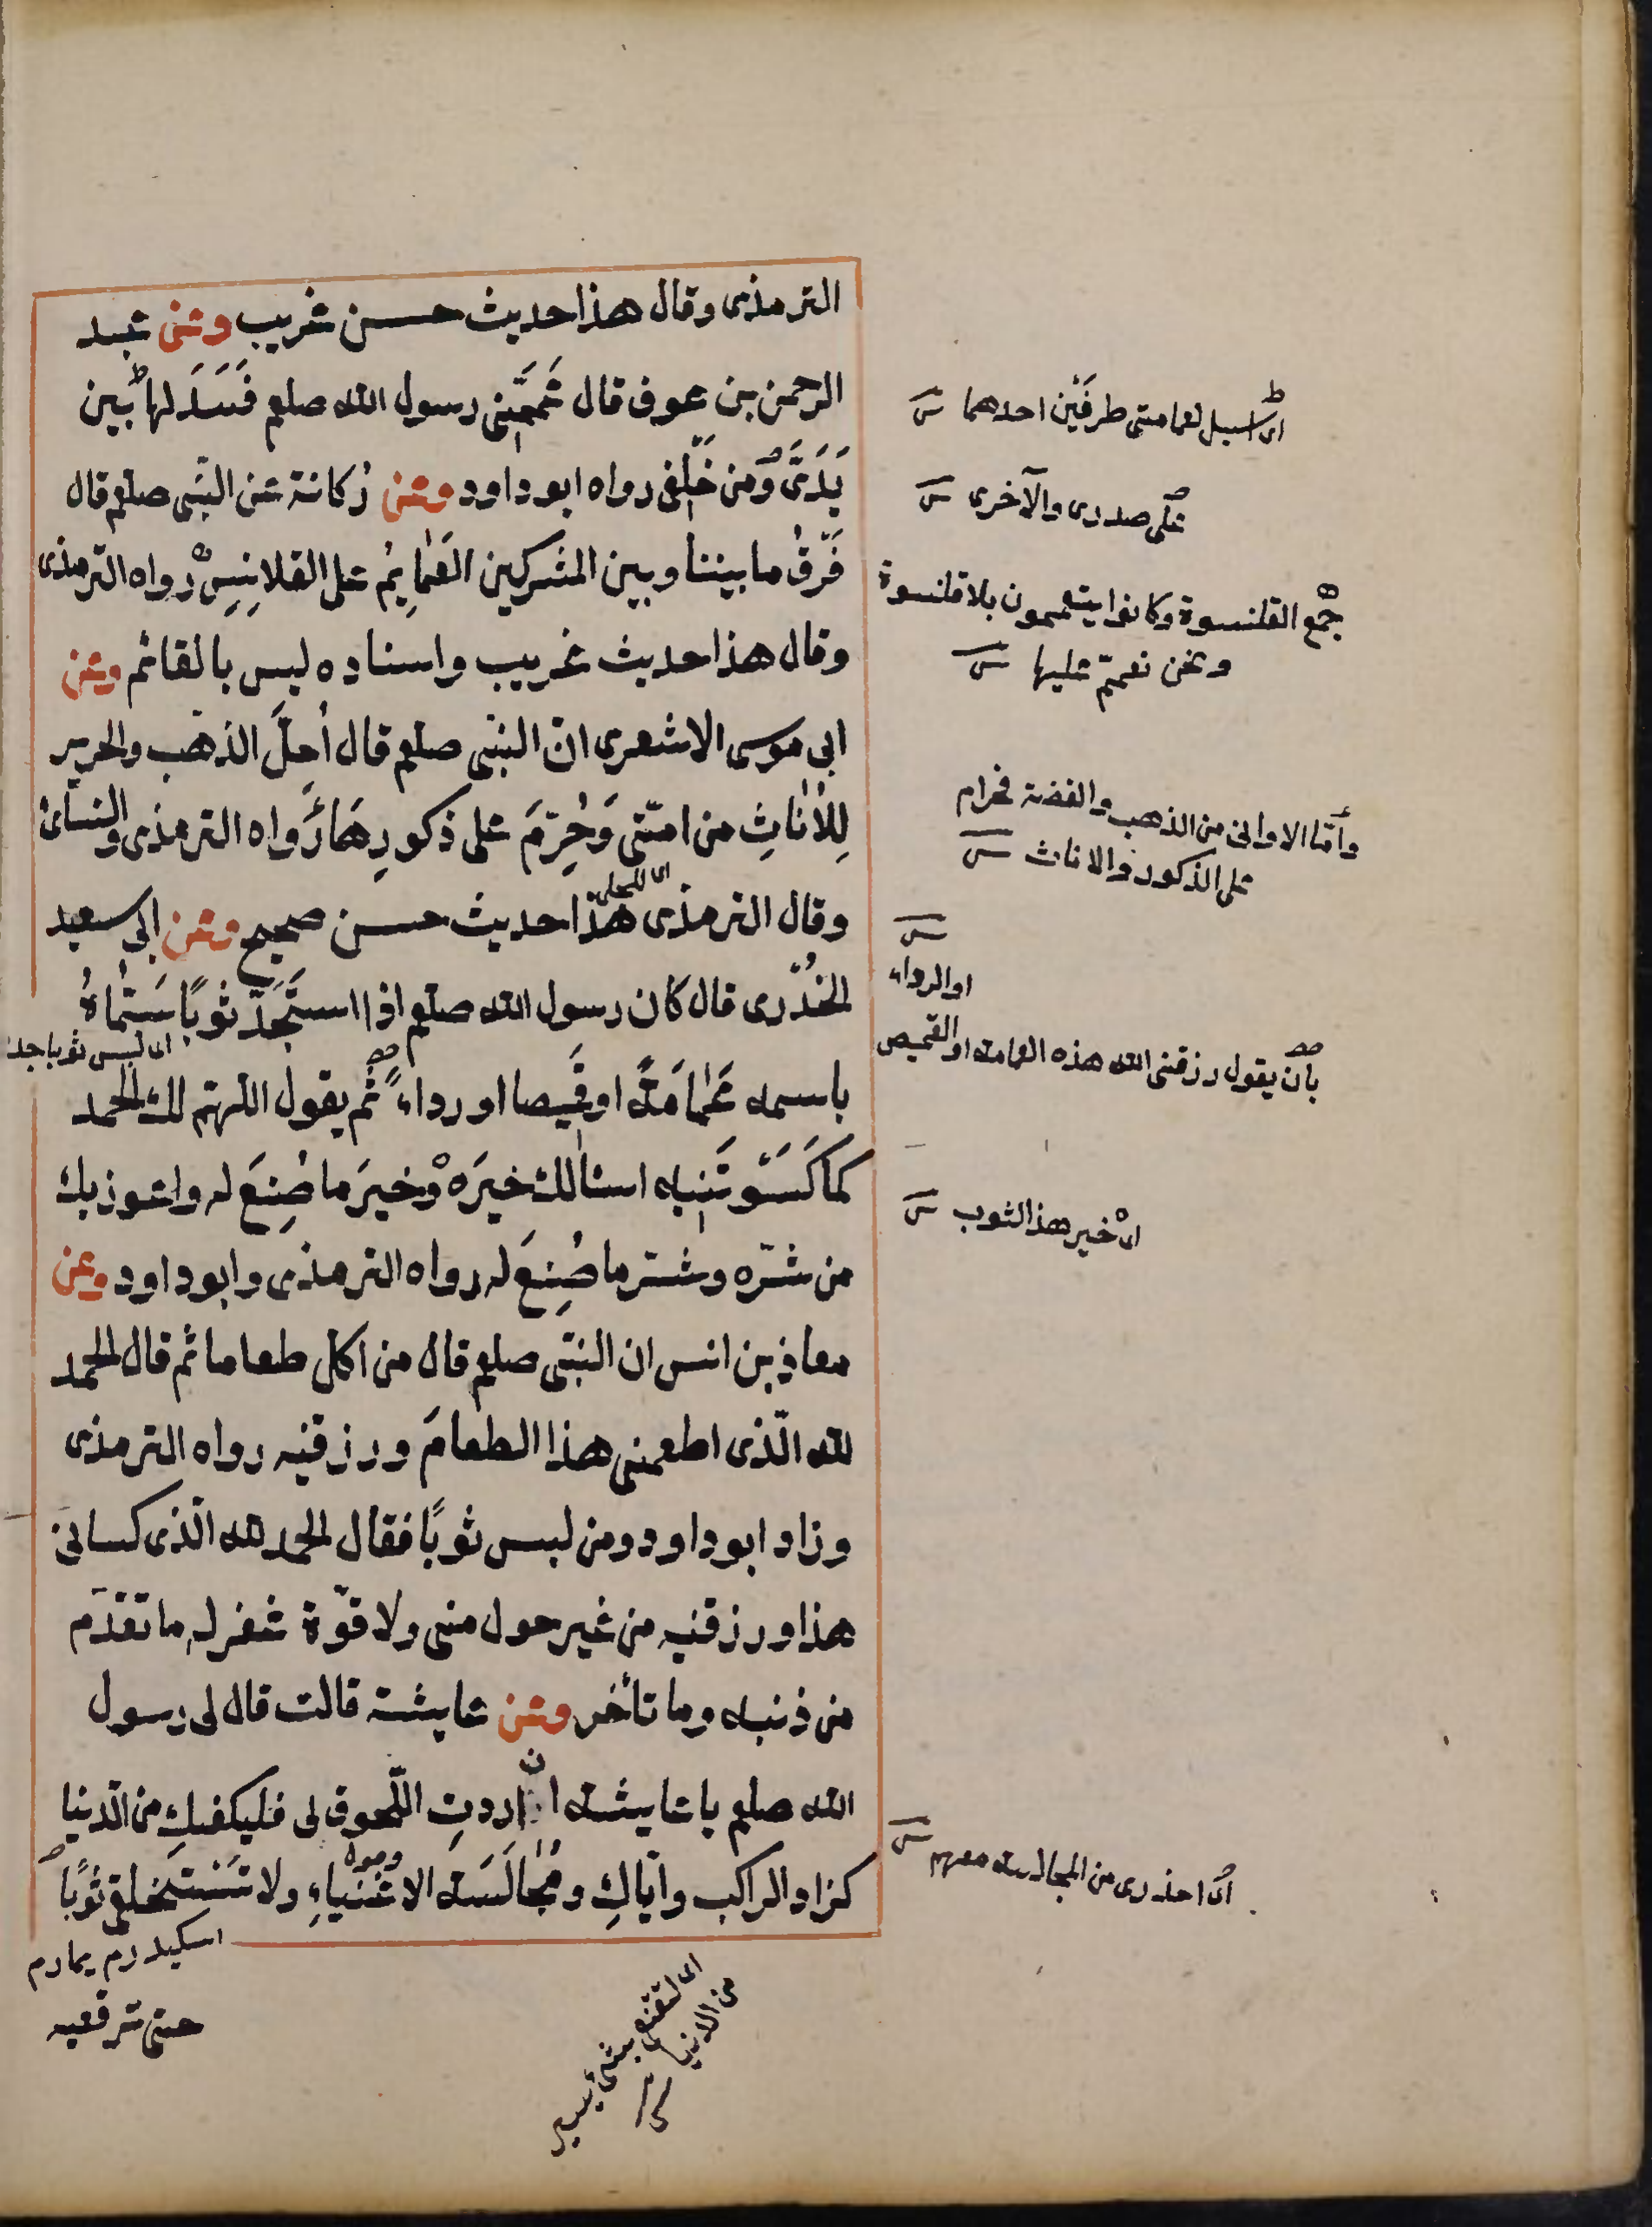 الترمذى وقال هذا حديث حسن غريب وعن عبد
الرحمن بن عوف قال عَمَّمَنِى رسول الله صلعم فَسَدَلها بين
يَدَىَّ ومن خَلْفى رواه ابو داود وعن رُكانة عن النبّى صلعم قال
فَرْقُ ما بيننا وبين المشركين العَمايِمُ على القلانِسِ رواه الترمذى
وقال هذا حديث غريب واسناده ليس بالقائم وعن
ابى موسى الاشعرى انّ النبّى صلعم قال أُحِلَّ الذهب والحرير
لِلاُناثِ من امّتى وَحُرِّمَ على ذكورِهَا رَواه الترمذى والنسائ
وقال الترمذى هذا حديث حسن صحيح وعن ابى سعيد
الخُدْرى قال كان رسول الله صلعم اذا استَجَدَّ ثوبًا سَمَّاهُ
باسمه عَمَامَةً او قَميصا او رداءً ثُم يقول اللّهمّ لك الحمد
كما كَسَوتَنِيه اسئالك خيرَه وخيرَ ما صُنِعَ له واعوذ بك
من شرّه وشرّ ما صُنِعَ له رواه الترمذى وابو داود وعن
معاذ بن انس ان النبّى صلعم قال من اكل طعاما ثم قال الحمد
لله الّذى اطعمنى هذا الطعامَ ورزقنيه رواه الترمذى
وزاد ابو داود ومن لبس ثوبًا فقال الحمد لله الّذى كسانى
هذا ورزقنيه من غير حول منى ولا قوّة غفر له ما تقدّم
من ذنبه وما تأخر وعن عايشة قالت قال لى رسول
الله صلعم ياعايشة ان اردتِ اللّحوق لى فليكفكِ من الدنيا
كزاد الراكب وايّاكِ ومُجالَسَة الاغنياءِ ولا تَستخلقى ثوبًا
حتى ترقعيه
اى اسبل لعمامتى طرفَين احدهما
على صدرى والآخرى
جمع القلنسوة وكانوا يتعممون بلا قلنسوة
ونحن نعمّم عليها
وأمّا الاوانى من الذهب والفضة فحرام
على الذكور والاناث
اى للحلى
او الرداء
بأن يقول رزقنى الله هذه العمامة او القميص
اى لبس ثوبا جد
اى خير هذ الثوب
اى احذرى من المجالسة معهم
اى لتقنعى بشئ يسير
من الدنيا